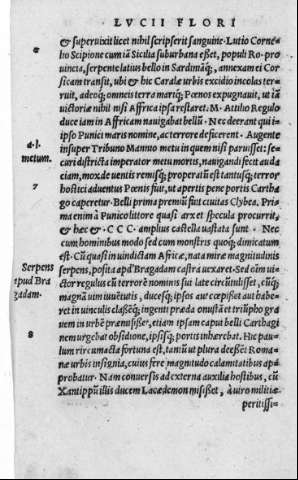 LVCII FLORI
& supervixit licet nihil scripserit sanguine. Lutio Corne
lio Scipione cum iā Sicilia suburbana esset, populi Ro. pro
uincia, serpente latius bello in Sardiniāq;, annexam ei Cor
sicam transit, ubi & hic Caralæ urbis excidio incolas ter-
ruit, adeoq; omnes terra mariq; Pœnos expugnauit, ut iā
uictoriæ nihil nisi Affrica ipsa restaret. M. Attilio Regulo
duce iam in Affricam nauigabat bellū. Nec deerant qui i-
ipso Punici maris nomine, ac terrore deficerent. Augente
d.l.
insuper Tribuno Mannio metu in quem nisi paruisset: se
metum.
curi districta imperator metu mortis, nauigandi fecit auda
ciam, mox de uentis remisq; properatū est tantusq; terror
hostici aduentus Pœnis fuit, ut apertis pene portis Cartha
7
go caperetur. Belli prima premiū fuit ciuitas Clybea. Pri-
ma enim à Punico littore quasi arx et specula procurrit,
& hæc & . C C C . amplius castella uastata sunt . Nec
cum hominibus modo sed cum monstris quoq; dimicatum
est. Cū quasi in uindictam Africæ, nata miræ magnitudinis
Serpens
serpens, posita apd' Bragadam castra uexaret. Sed oīm uic
apud Bra
tor regulus cū terrorē nominis sui late circūtulisset, cūq;
gadam.
magnā uim iuuētutis , ducesq; ipsos aut cæpisset aut habe
ret in uinculis classēq; ingenti præda onustā et triūpho gra
uem in urbē præmisisset, etiam ipsam caput belli Cartbagi
8
nem urgebat obsidione, ipsisq; portis inhærebat. Hic pau-
lum circumacta fortuna est, tantū ut plura deessēt Roma-
næ urbis insignia, cuius fere magnitudo calamitatibus ap-
probatur. Nam conuersis ad externa auxilia hostibus, cū
Xantippū illis ducem Lacædemon misisset, à uiro militiæ
peritissi-